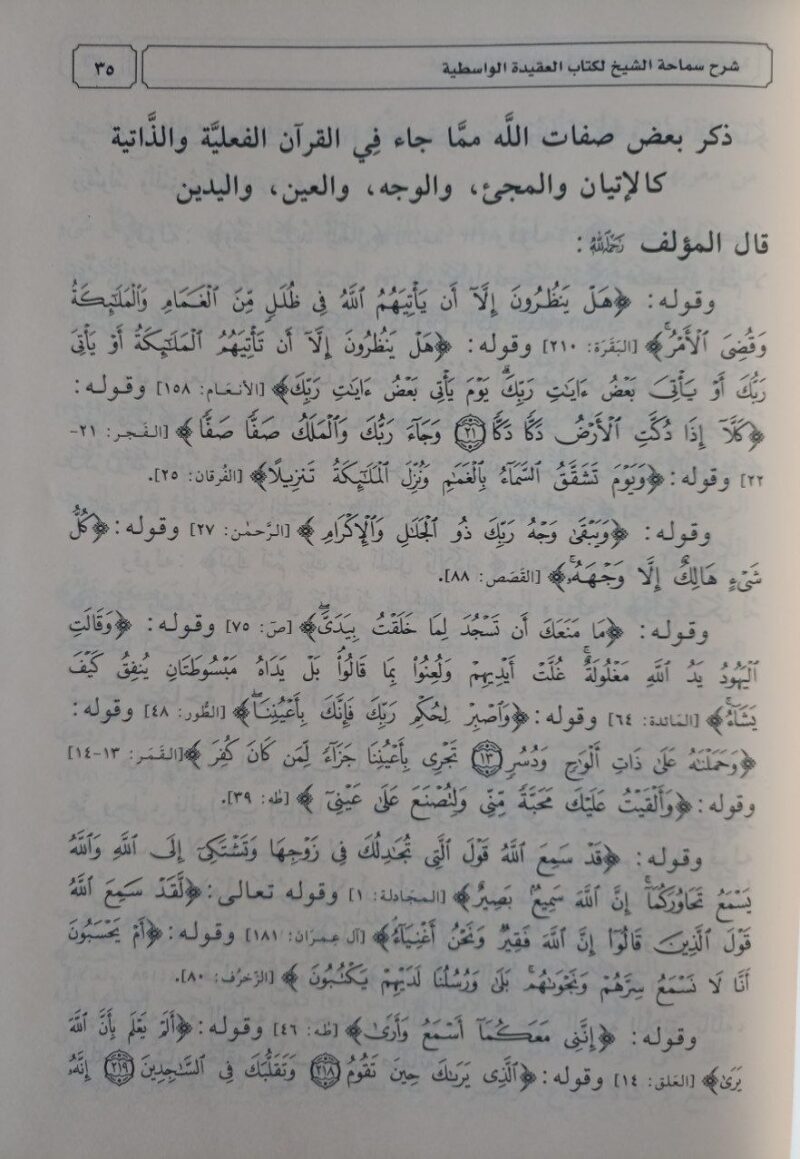 شرح سماحة الشيخ لكتاب العقيدة الواسطية
٣٥
ذكر بعض صفات اللَّه ممَّا جاء فِي القرآن الفعليَّة والذَّاتية
كالإتيان والمجئ، والوجه، والعين، واليدين
قال المؤلف رَحِمَهُ اللَّهُ:
وقوله: ﴿هَلْ يَنظُرُونَ إِلَّآ أَن يَأْتِيَهُمُ ٱللَّهُ فِى ظُلَلٍ مِّنَ ٱلْغَمَامِ وَٱلْمَلَٰٓئِكَةُ
وَقُضِىَ ٱلْأَمْرُ﴾ [البَقَرَة: ٢١٠] وقوله: ﴿هَلْ يَنظُرُونَ إِلَّآ أَن تَأْتِيَهُمُ ٱلْمَلَٰٓئِكَةُ أَوْ يَأْتِىَ
رَبُّكَ أَوْ يَأْتِىَ بَعْضُ ءَايَٰتِ رَبِّكَ ۗ يَوْمَ يَأْتِى بَعْضُ ءَايَٰتِ رَبِّكَ﴾ [الأنعَام: ١٥٨] وقوله:
﴿كَلَّآ إِذَا دُكَّتِ ٱلْأَرْضُ دَكًّا دَكًّا ٢١ وَجَآءَ رَبُّكَ وَٱلْمَلَكُ صَفًّا صَفًّا﴾ [الفَجر: ٢١-
٢٢] وقوله: ﴿وَيَوْمَ تَشَقَّقُ ٱلسَّمَآءُ بِٱلْغَمَٰمِ وَنُزِّلَ ٱلْمَلَٰٓئِكَةُ تَنزِيلًا﴾ [الفُرقان: ٢٥].
وقوله: ﴿وَيَبْقَىٰ وَجْهُ رَبِّكَ ذُو ٱلْجَلَٰلِ وَٱلْإِكْرَامِ﴾ [الرَّحمٰن: ٢٧] وقوله: ﴿كُلُّ
شَىْءٍ هَالِكٌ إِلَّا وَجْهَهُۥ﴾ [القَصَص: ٨٨].
وقوله: ﴿مَا مَنَعَكَ أَن تَسْجُدَ لِمَا خَلَقْتُ بِيَدَىَّ﴾ [صَ: ٧٥] وقوله: ﴿وَقَالَتِ
ٱلْيَهُودُ يَدُ ٱللَّهِ مَغْلُولَةٌ ۚ غُلَّتْ أَيْدِيهِمْ وَلُعِنُوا۟ بِمَا قَالُوا۟ ۘ بَلْ يَدَاهُ مَبْسُوطَتَانِ يُنفِقُ كَيْفَ
يَشَآءُ﴾ [المَائدة: ٦٤] وقوله: ﴿وَٱصْبِرْ لِحُكْمِ رَبِّكَ فَإِنَّكَ بِأَعْيُنِنَا﴾ [الطُّور: ٤٨] وقوله:
﴿وَحَمَلْنَٰهُ عَلَىٰ ذَاتِ أَلْوَٰحٍ وَدُسُرٍ ١٣ تَجْرِى بِأَعْيُنِنَا جَزَآءً لِّمَن كَانَ كُفِرَ﴾ [القَمَر: ١٣-١٤]
وقوله: ﴿وَأَلْقَيْتُ عَلَيْكَ مَحَبَّةً مِّنِّى وَلِتُصْنَعَ عَلَىٰ عَيْنِىٓ﴾ [طه: ٣٩].
وقوله: ﴿قَدْ سَمِعَ ٱللَّهُ قَوْلَ ٱلَّتِى تُجَٰدِلُكَ فِى زَوْجِهَا وَتَشْتَكِىٓ إِلَى ٱللَّهِ وَٱللَّهُ
يَسْمَعُ تَحَاوُرَكُمَآ ۚ إِنَّ ٱللَّهَ سَمِيعٌۢ بَصِيرٌ﴾ [المجَادلة: ١] وقوله تعالى: ﴿لَّقَدْ سَمِعَ ٱللَّهُ
قَوْلَ ٱلَّذِينَ قَالُوٓا۟ إِنَّ ٱللَّهَ فَقِيرٌ وَنَحْنُ أَغْنِيَآءُ﴾ [آل عِمرَان: ١٨١] وقوله: ﴿أَمْ يَحْسَبُونَ
أَنَّا لَا نَسْمَعُ سِرَّهُمْ وَنَجْوَىٰهُم ۚ بَلَىٰ وَرُسُلُنَا لَدَيْهِمْ يَكْتُبُونَ﴾ [الزّخرُف: ٨٠].
وقوله: ﴿إِنَّنِى مَعَكُمَآ أَسْمَعُ وَأَرَىٰ﴾ [طه: ٤٦] وقوله: ﴿أَلَمْ يَعْلَم بِأَنَّ ٱللَّهَ
يَرَىٰ﴾ [العَلق: ١٤] وقوله: ﴿ٱلَّذِى يَرَىٰكَ حِينَ تَقُومُ ٢١٨ وَتَقَلُّبَكَ فِى ٱلسَّٰجِدِينَ ٢١٩ إِنَّهُۥ